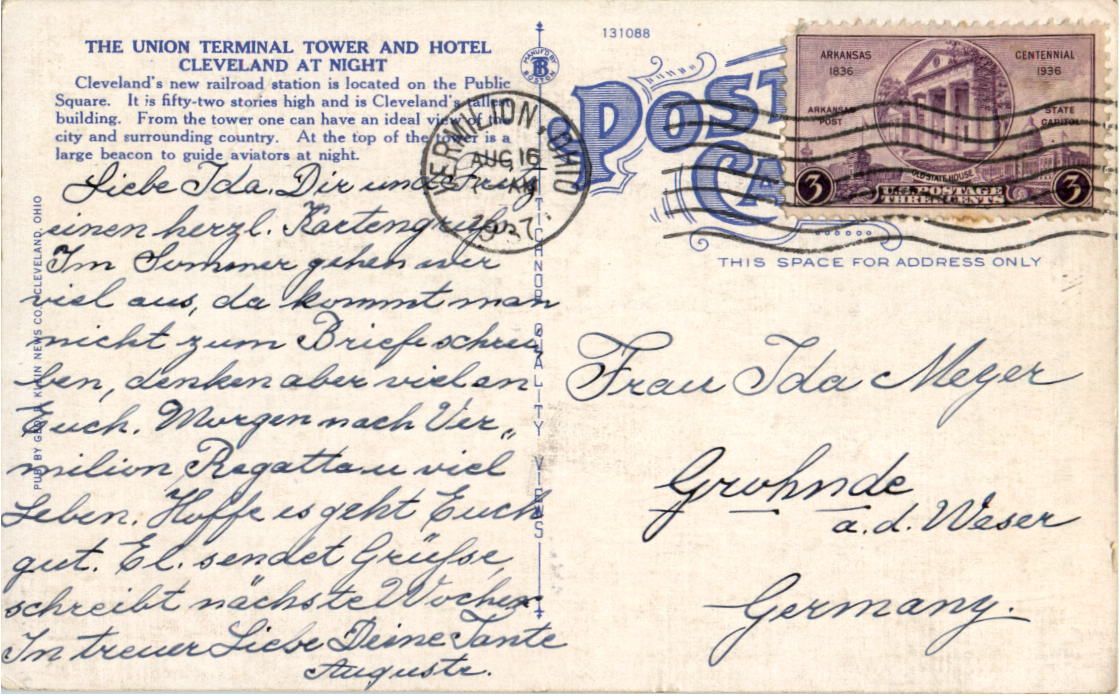 THE UNION TERMINAL TOWER AND HOTEL
CLEVELAND AT NIGHT
Cleveland's new railroad station is located on the Public
Square. It is fifty-two stories high and is Cleveland's tallest
building. From the tower one can have an ideal view of the
city and surrounding country. At the top of the tower is a
large beacon to guide aviators at night.
Liebe Ida. Dir und Fritz
einen herzl. Kartengruß.
Im Sommer gehen wir
viel aus, da kommt man
nicht zum Briefe schrei
ben, denken aber viel an
Euch. Morgen nach Ver„
milion Regatta u viel
Leben. Hoffe es geht Euch
gut. El. sendet Grüße,
schreibt nächste Woche
In treuer Liebe Deine Tante
Auguste.
PUB. BY GEO. R. KLEIN NEWS CO., CLEVELAND, OHIO
MANUF'D BY
TB
BOSTON
TICHNOR QUALITY VIEWS
131088
POST
CA
VERMILION, OHIO
AUG 16
1937
ARKANSAS
1836
CENTENNIAL
1936
ARKANSAS
POST
STATE
CAPITOL
OLD STATE HOUSE
3
U.S. POSTAGE
THREE CENTS
3
THIS SPACE FOR ADDRESS ONLY
Frau Ida Meyer
Grohnde
a.d. Weser
Germany.